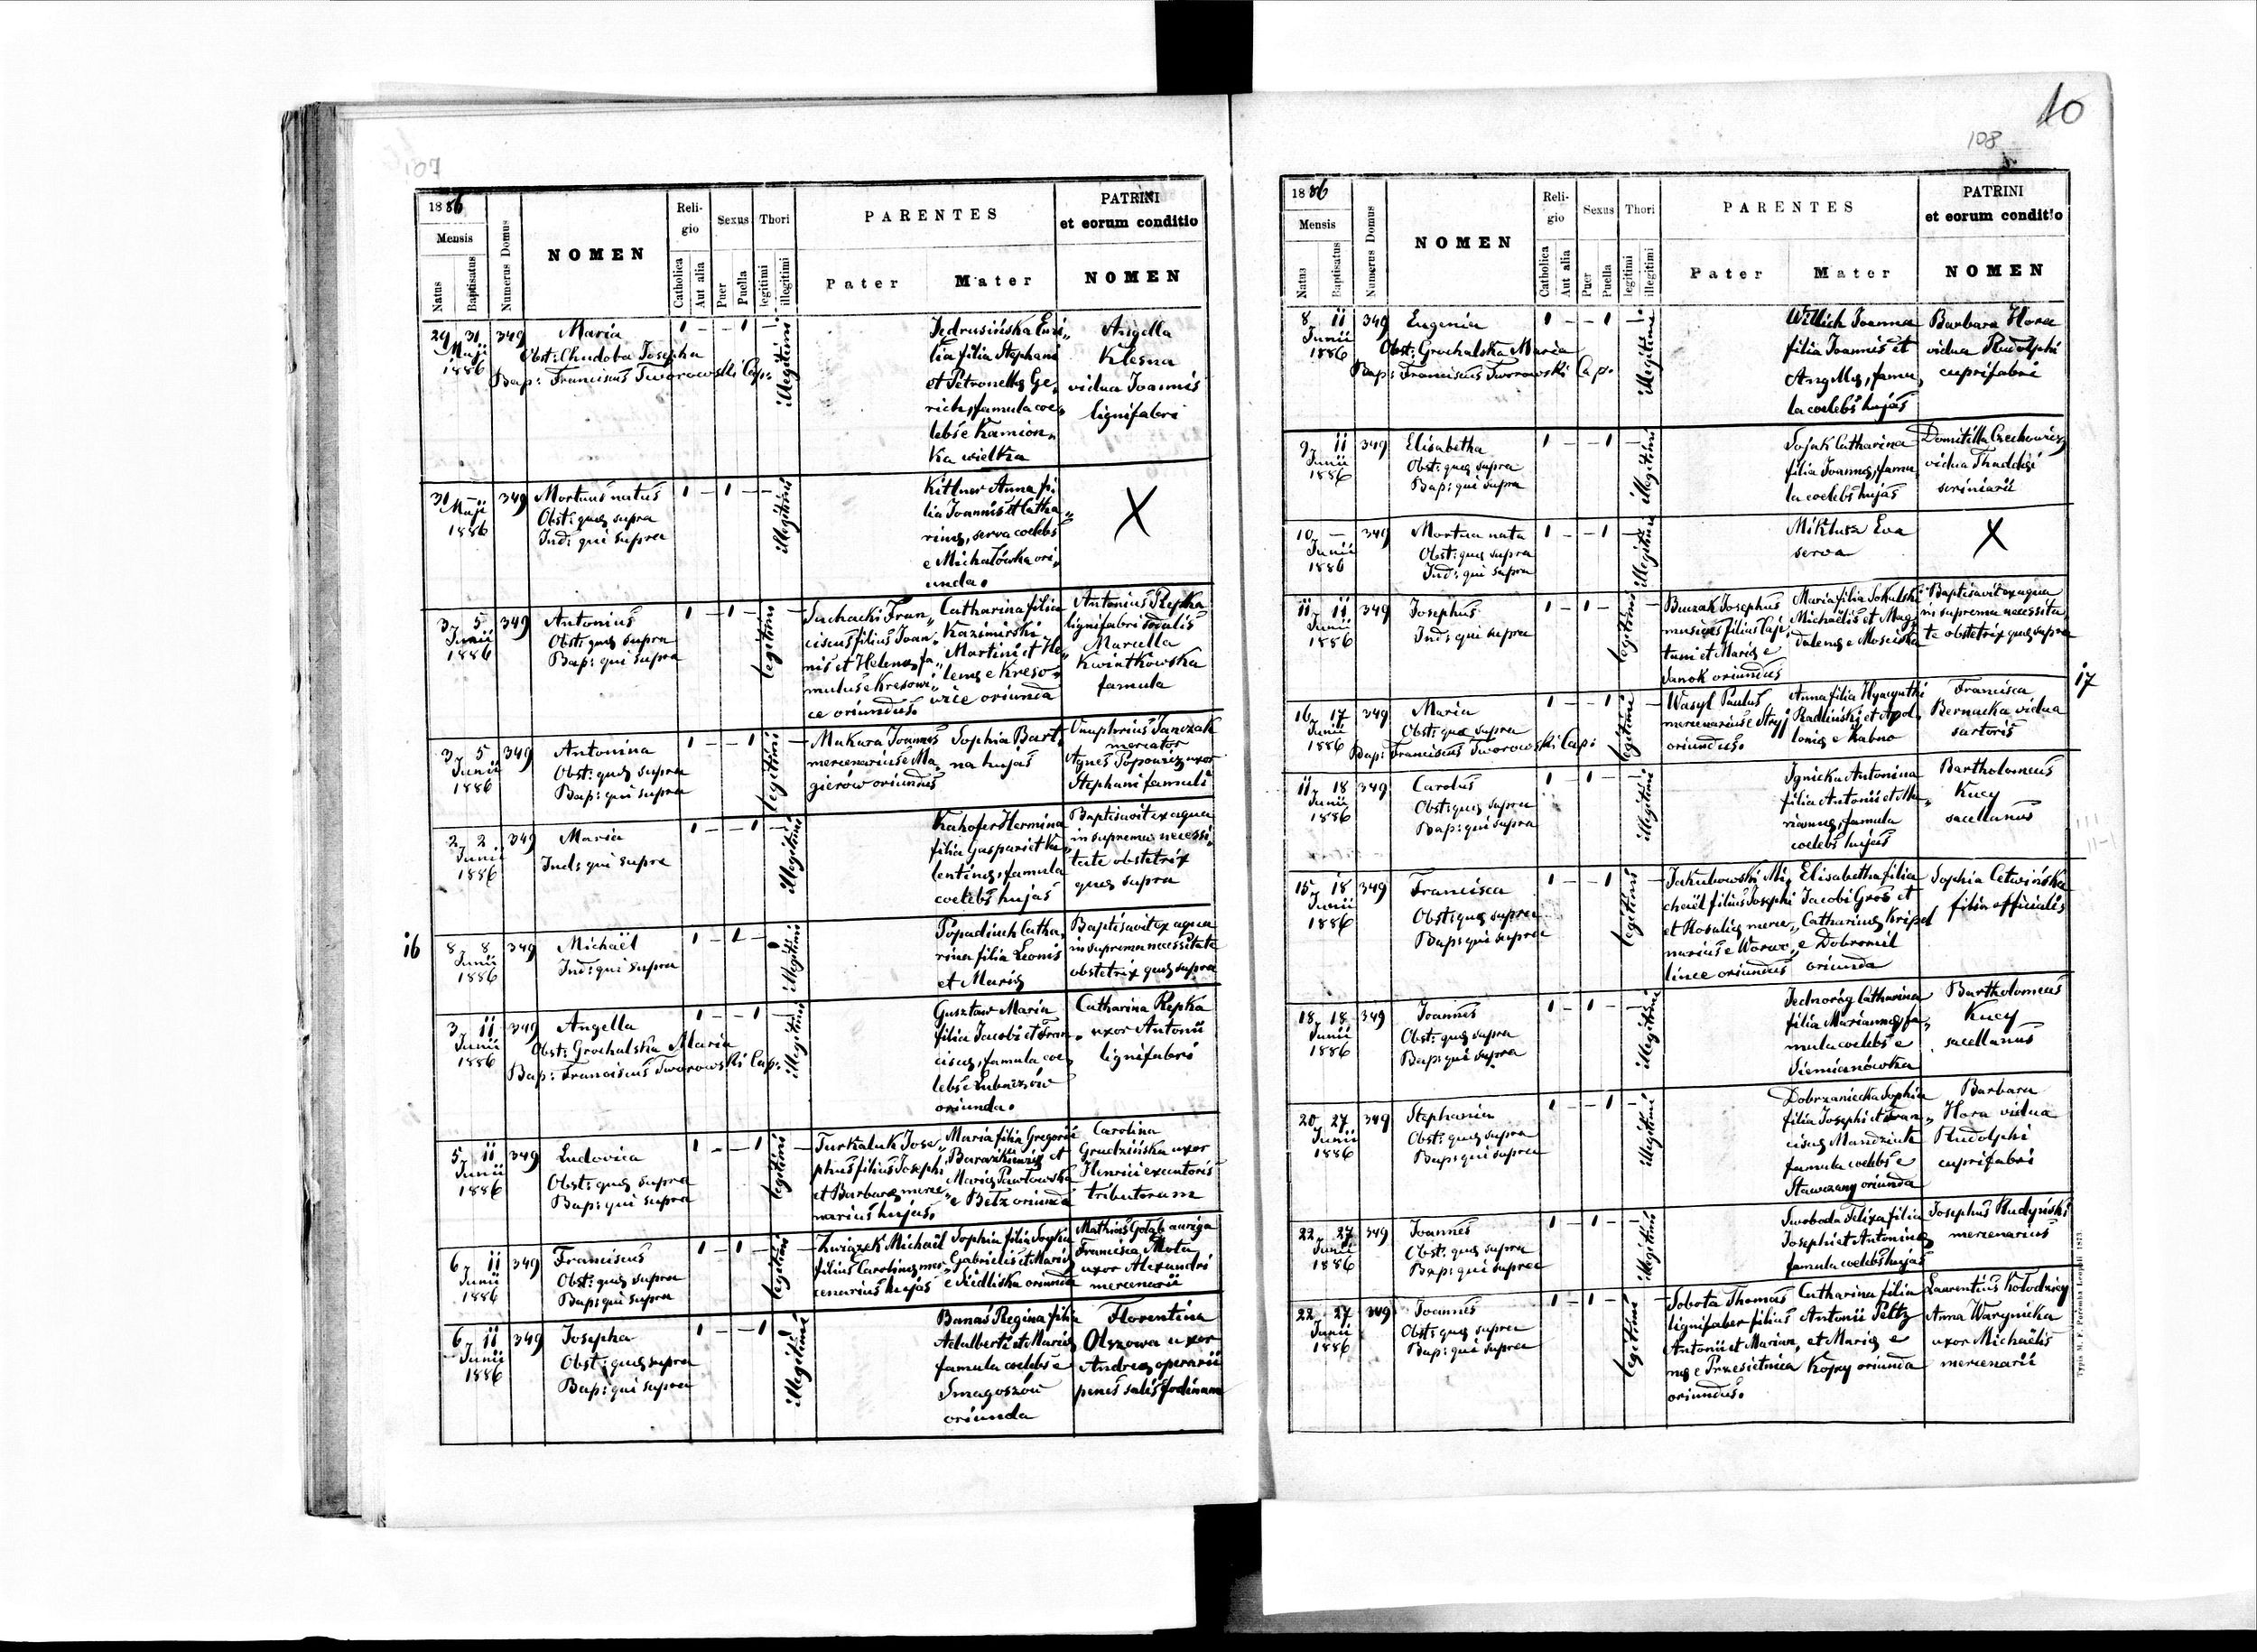 107
1886
Mensis
Natus
Baptisatus
Numerus Domus
NOMEN
Reli-
gio
Catholica
Aut alia
Sexus
Puer
Puella
Thori
legitimi
illegitimi
PARENTES
Pater
Mater
PATRINI
et eorum conditio
NOMEN
29 31
Maji
1886
349
Maria
Obst: Chudoba Josepha
Bap: Franciscus Tworowski Cap:
1 – – 1 –
illegitimi
Jedrusińska Emi„
lia filia Stephani
et Petronellæ Ge„
rich, famula coe„
lebs e Kamion„
ka wielka
Angella
Klesna
vidua Joannis
lignifabri
31 –
Maji
1886
349
Mortuus natus
Obst: quæ supra
Ind: qui supra
1 – 1 – –
illegitimi
Kittner Anna fi
lia Joannis et Catha„
rinæ, serva coelebs
e Michałówka ori„
unda.
X
3 5
Junii
1886
349
Antonius
Obst: quæ supra
Bap: qui supra
1 – 1 –
legitimi
–
Suchacki Fran„
ciscus filius Joan„
nis et Helenæ fa„
mulus e Kresowi„
ce oriundus.
Catharina filia
Kazimirski
Martini et He„
lenæ e Kreso„
wice oriunda
Antonius Repka
lignifabri sodalis
Marcella
Kwiatkowska
famula
3 5
Junii
1886
349
Antonina
Obst: quæ supra
Bap: qui supra
1 – – 1
legitimi
–
Makara Joannes
mercenarius e Ma„
gierów oriundus
Sophia Bart„
na hujas
Onuphrius Janczak
mercator
Agnes Popowicz uxor
Stephani famuli
2 2
Junii
1886
349
Maria
Ind: qui supra
1 – – 1 –
illegitimi
Kahofer Hermina
filia Gaspari et Va„
lentinæ, famula
coelebs hujas
Baptisavit ex aqua
in suprema necessi„
tate obstetrix
quæ supra
16
8 8
Junii
1886
349
Michaël
Ind: qui supra
1 – 1 – –
illegitimi
Popadiuch Catha„
rina filia Leonis
et Mariæ
Baptisavit ex aqua
in suprema necessitate
obstetrix quæ supra
3 11
Junii
1886
349
Angella
Obst: Grochalska Maria
Bap: Franciscus Tworowski Cap:
1 – – 1 –
illegitimi
Gusztaw Maria
filia Jacobi et Fran„
ciscæ, famula coe„
lebs e Lubaczów
oriunda.
Catharina Repka
uxor Antonii
lignifabri
5 11
Junii
1886
349
Ludovica
Obst: quæ supra
Bap: qui supra
1 – – 1
legitimi
–
Turkaluk Jose„
phus filius Josephi
et Barbaræ merce„
narius hujas.
Maria filia Gregorii
Baraszkiewicz et
Mariæ Pawłowska
e Bełz oriunda
Carolina
Grudzińska uxor
Henrici executoris
tributorum
6 11
Junii
1886
349
Franciscus
Obst: quæ supra
Bap: qui supra
1 – 1 –
legitimi
–
Związek Michaël
filius Carolinæ mer„
cenarius hujas
Sophia filia Soyka
Gabrielis et Mariæ
e Siedliska oriunda
Mathias Gołąb auriga
Francisca Mota
uxor Alexandri
mercenarii
6 11
Junii
1886
349
Josepha
Obst: quæ supra
Bap: qui supra
1 – – 1
illegitimi
Banaś Regina filia
Adalberti et Mariæ
famula coelebs e
Smagoszów
oriunda
Florentina
Olszowa uxor
Andreæ operarii
penes salis fodinam
10
108
1886
Mensis
Natus
Baptisatus
Numerus Domus
NOMEN
Reli-
gio
Catholica
Aut alia
Sexus
Puer
Puella
Thori
legitimi
illegitimi
PARENTES
Pater
Mater
PATRINI
et eorum conditio
NOMEN
8 11
Junii
1886
349
Eugenia
Obst: Grochalska Maria
Bap: Franciscus Tworowski Cap.
1 – – 1 –
illegitimi
Willich Joanna
filia Joannis et
Angellæ, famu„
la coelebs hujas
Barbara Hora
vidua Rudolphi
cuprifabri
9 11
Junii
1886
349
Elisabetha
Obst: quæ supra
Bap: qui supra
1 – – 1 –
illegitimi
Sojak Catharina
filia Joannæ, famu
la coelebs hujas
Domitilla Czechowicz
vidua Thaddæi
scriniarii
10 –
Junii
1886
349
Mortua nata
Obst: quæ supra
Ind: qui supra
1 – – 1 –
illegitimi
Miktusa Eva
serva
X
11 11
Junii
1886
349
Josephus
Ind: qui supra
1 – 1 –
legitimi
–
Buczak Josephus
musicus filius Caje„
tani et Mariæ e
Sanok oriundus
Maria filia Sokulski
Michaëlis et Mag„
dalenæ e Mosciska
Baptisavit ex aqua
in suprema necessita
te obstetrix quæ supra
17
16 17
Junii
1886
349
Maria
Obst: quæ supra
Bap: Franciscus Tworowski Cap:
1 – – 1
legitimi
–
Wasyl Paulus
mercenarius e Stryj
oriundus.
Anna filia Hyacynthi
Radliński et Apol„
loniæ e Kabno
Francisca
Bernacka vidua
sartoris
11 18
Junii
1886
349
Carolus
Obst: quæ supra
Bap: qui supra
1 – 1 – –
illegitimi
Ignicka Antonina
filia Antonii et Ma„
riannæ, famula
coelebs hujas
Bartholomeus
Kucy
sacellanus
15 18
Junii
1886
349
Francisca
Obst: quæ supra
Bap: qui supra
1 – – 1
legitimi
–
Jakubowski Mi„
chaël filius Josephi
et Rosaliæ merce„
narius e Worac„
lince oriundus
Elisabetha filia
Jacobi Gros et
Catharinæ Kripel
e Dobromil
oriunda
Sophia Cetwińska
filia officialis
18 18
Junii
1886
349
Joannes
Obst: quæ supra
Bap: qui supra
1 – 1 – –
illegitimi
Jednoróg Catharina
filia Mariannæ, fa„
mula coelebs e
Siemianówka
Bartholomeus
Kucy
sacellanus
20 27
Junii
1886
349
Stephania
Obst: quæ supra
Bap: qui supra
1 – – 1 –
illegitimi
Dobrzaniecka Sophia
filia Josephi et Fran„
ciscæ Mandziuk
famula coelebs e
Stawczany oriunda
Barbara
Hora vidua
Rudolphi
cuprifabri
22 27
Junii
1886
349
Joannes
Obst: quæ supra
Bap: qui supra
1 – 1 – –
illegitimi
Swoboda Felixa filia
Josephi et Antoninæ
famula coelebs hujas
Josephus Rudyński
mercenarius
22 27
Junii
1886
349
Joannes
Obst: quæ supra
Bap: qui supra
1 – 1 –
legitimi
–
Sobota Thomas
lignifaber filius
Antonii et Marian„
næ e Przesietnica
oriundus.
Catharina filia
Antonii Peltz
et Mariæ e
Kopy oriunda
Laurentius Kołodziej
Anna Warynicka
uxor Michaëlis
mercenarii